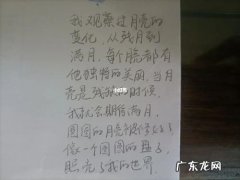 我观察过月亮的
变化，从残月到
满月，每个月亮都有
他独特的美丽，当月
亮是残缺的时候，
我就会期待满月，
圆圆的月亮
像一个圆圆的盘子，
照亮了我的世界
广东龙网